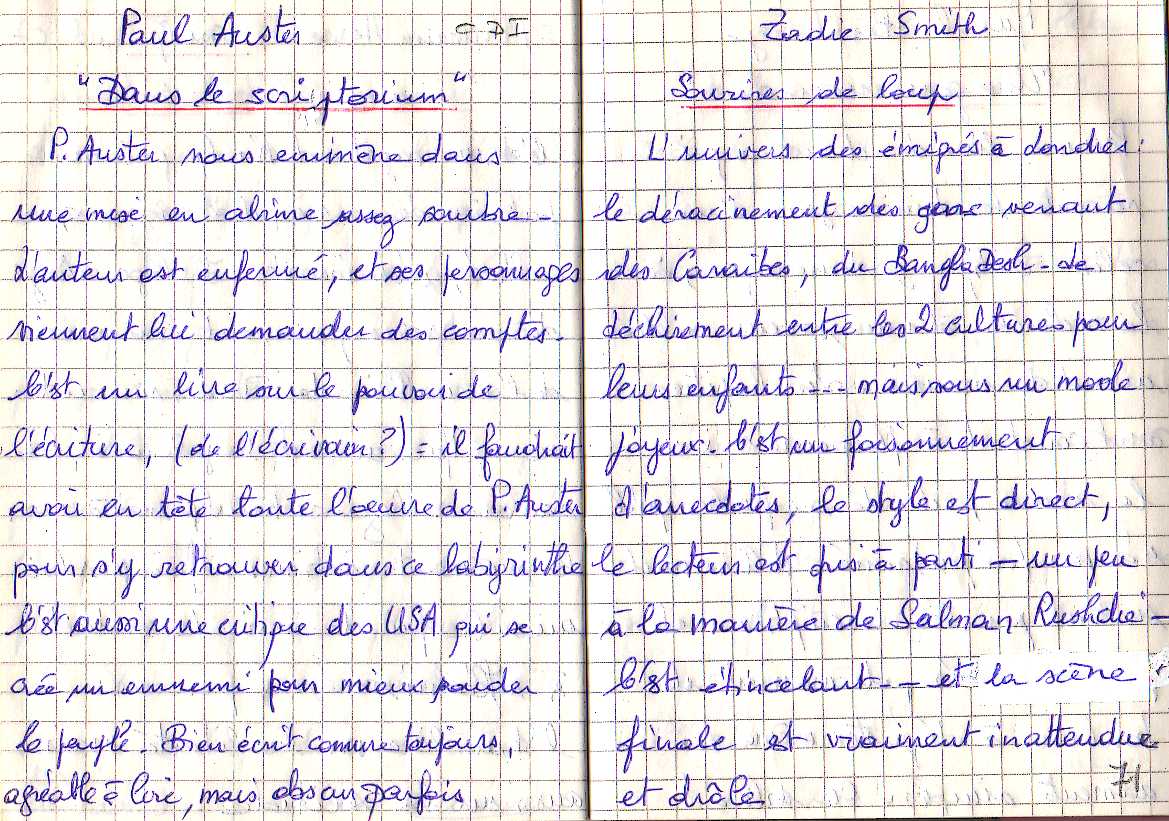 Paul Auster CDI
"Dans le scriptorium"
P. Auster nous emmène dans
une mise en abime assez sombre -
L'auteur est enfermé, et ses personnages
viennent lui demander des comptes.
C'est un livre sur le pouvoir de
l'écriture, (de l'écrivain ?) = il faudrait
avoir en tête toute l'oeuvre de P. Auster
pour s'y retrouver dans ce labyrinthe
C'est aussi une critique des USA qui se
crée un ennemi pour mieux souder
le peuple. Bien écrit comme toujours,
agréable à lire, mais obscur parfois
Zadie Smith
Sourires de loup
L'univers des émigrés à Londres :
le déracinement des gens venant
des Caraïbes, du Bangla Desh - le
déchirement entre les 2 cultures pour
leurs enfants --- mais sous un mode
joyeux. C'est un foisonnement
d'anecdotes, le style est direct,
le lecteur est pris à parti — un peu
à la manière de Salman Rushdie -
C'est étincelant -- et la scène
finale est vraiment inattendue
et drôle 71